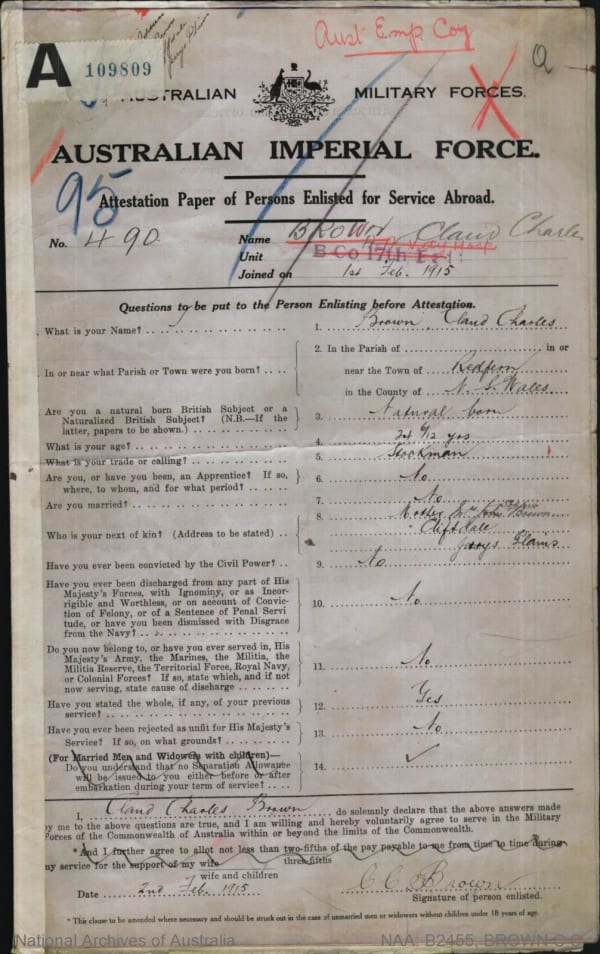 Aust Emp Coy
A 109809
AUSTRALIAN MILITARY FORCES.
AUSTRALIAN IMPERIAL FORCE.
95
Attestation Paper of Persons Enlisted for Service Abroad.
No. 490. Name BROWN, Claud Charles
Unit B Co 17th
Joined on 1st Feb. 1915
Questions to be put to the Person Enlisting before Attestation.
1. What is your Name? 1. Brown, Claud Charles
2. In the Parish of in or
In or near what Parish or Town were you born? near the Town of Redfern
in the County of N. S. Wales
Are you a natural born British Subject or a
Naturalized British Subject? (N.B.—If the 3. Natural born
latter, papers to be shown.)
What is your age? 4. 24 yrs
What is your trade or calling? 5. Stockman
Are you, or have you been, an Apprentice? If so, 6. No.
where, to whom, and for what period?
Are you married? 7. No
8. Mother Brown
Who is your next of kin? (Address to be stated) Cliftdale
Garys Plains
Have you ever been convicted by the Civil Power? 9. No
Have you ever been discharged from any part of His
Majesty's Forces, with Ignominy, or as Incor-
rigible and Worthless, or on account of Convic- 10. No
tion of Felony, or of a Sentence of Penal Servi
tude, or have you been dismissed with Disgrace
from the Navy?
Do you now belong to, or have you ever served in, His
Majesty's Army, the Marines, the Militia, the
Militia Reserve, the Territorial Force, Royal Navy, 11. No
or Colonial Forces? If so, state which, and if not
now serving, state cause of discharge
Have you stated the whole, if any, of your previous 12. Yes
service?
Have you ever been rejected as unfit for His Majesty's 13. No
Service? If so, on what grounds?
(For Married Men and Widowers with children)—
Do you understand that no Separation Allowance
will be issued to you either before or after 14.
embarkation during your term of service?
I, Claud Charles Brown do solemnly declare that the above answers made
by me to the above questions are true, and I am willing and hereby voluntarily agree to serve in the Military
Forces of the Commonwealth of Australia within or beyond the limits of the Commonwealth.
*And I further agree to allot not less than two-fifths of the pay payable to me from time to time during
three-fifths
my service for the support of my wife
wife and children
Date 2nd Feb. 1915 C C Brown
Signature of person enlisted.
* This clause to be amended where necessary and should be struck out in the case of unmarried men or widowers without children under 18 years of age.
National Archives of Australia NAA: B2455, BROWN C C